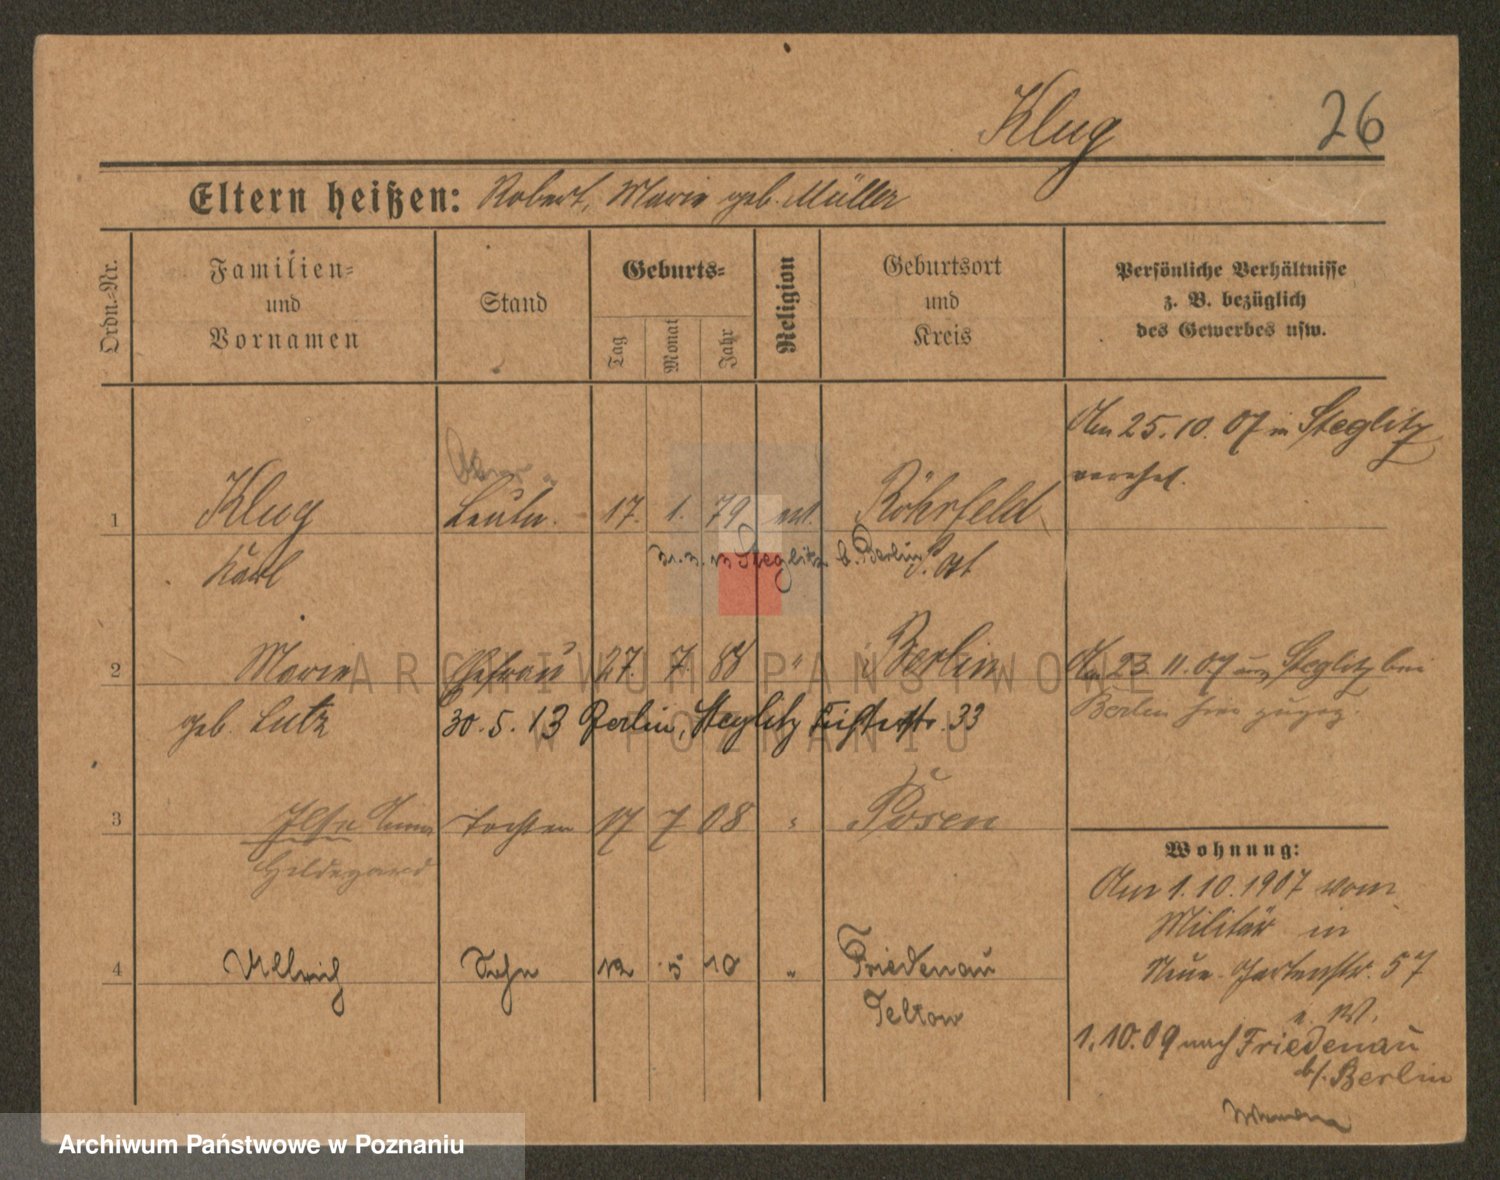 Klug 26
Eltern heißen: Robert, Marie geb. Müller
Ordn.=Nr.
Familien=
und
Vornamen
Stand
Geburts=
Tag
Monat
Jahr
Religion
Geburtsort
und
Kreis
Persönliche Verhältnisse
z. B. bezüglich
des Gewerbes usw.
Am 25.10.07 in Steglitz
verehel.
1 Klug Leutn. 17. 1. 79 Röhrfeld
Karl
Steglitz b. Berlin P. Ost
2 Marie Ehefrau 27. 7 88 " Berlin
Am 23 11.07 Steglitz bei
geb. Lutz
Berlin hier zugez.
30.5.13 Berlin, Steglitz 33
3 Ilse Anna Tochter 17 7 08 " Posen
Hildegard
4 Ullrich Sohn 12 5 10 " Friedenau
Teltow
Wohnung:
Am 1.10.1907 vom
Militär in
Neue Gartenstr. 57
1.10.09 nach Friedenau
b/. Berlin
ARCHIWUM PAŃSTWOWE
W POZNANIU
Archiwum Państwowe w Poznaniu